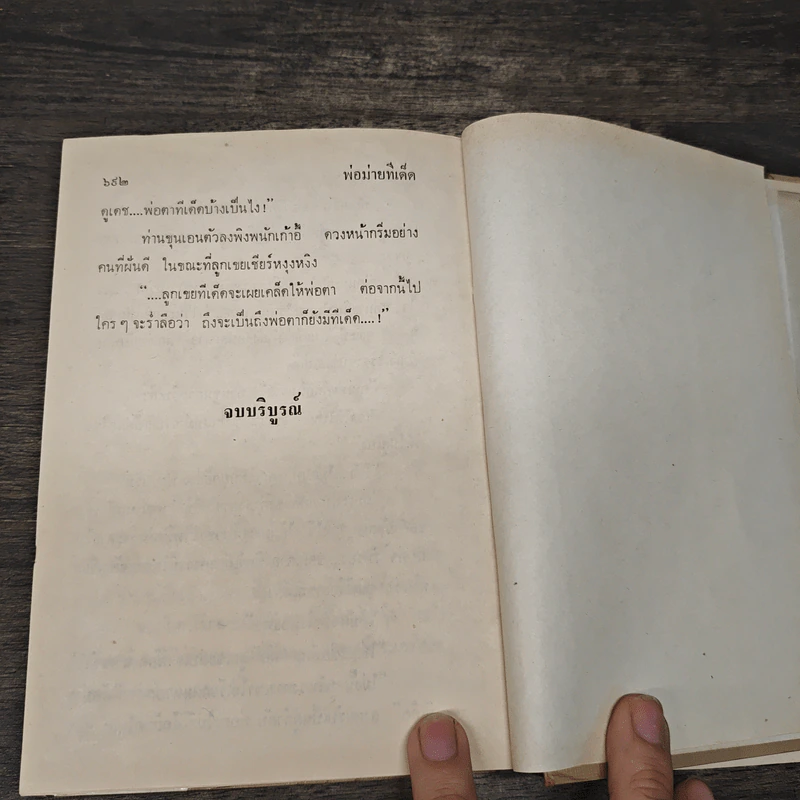 ๖๙๒ พ่อม่ายทีเด็ด
ดูเดช....พ่อตาทีเด็ดบ้างเป็นไง!”
ท่านขุนเอนตัวลงพิงพนักเก้าอี้ ดวงหน้ากริ่มอย่าง
คนที่ฝันดี ในขณะที่ลูกเขยเชียร์หงุงหงิง
“....ลูกเขยทีเด็ดจะเผยเคล็ดให้พ่อตา ต่อจากนี้ไป
ใคร ๆ จะร่ำลือว่า ถึงจะเป็นถึงพ่อตาก็ยังมีทีเด็ด....!”
จบบริบูรณ์